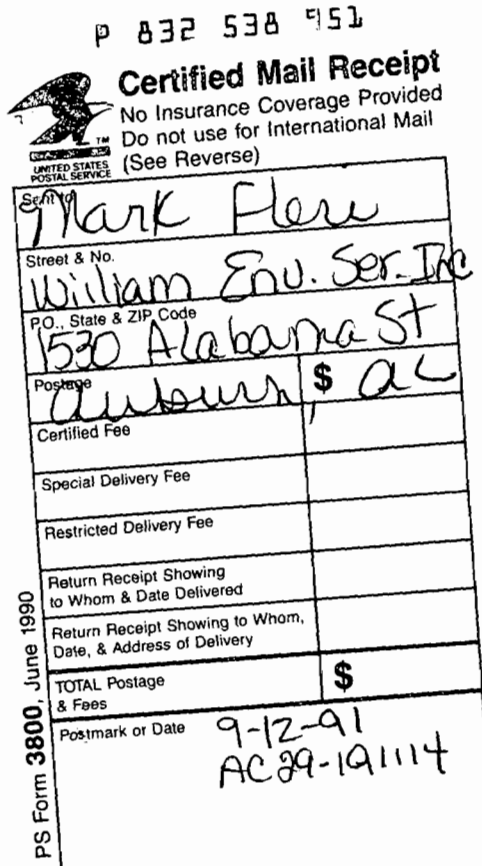 P 832 538 951
Certified Mail Receipt
No Insurance Coverage Provided
Do not use for International Mail
(See Reverse)
TM
UNITED STATES
POSTAL SERVICE
Sent to
Mark
Street & No.
William Env. Ser. Inc
P.O., State & ZIP Code
1530 Alabama St
Postage
Auburn, $ al
Certified Fee
Special Delivery Fee
Restricted Delivery Fee
Return Receipt Showing
to Whom & Date Delivered
Return Receipt Showing to Whom,
Date, & Address of Delivery
TOTAL Postage
& Fees
$
Postmark or Date
9-12-91
AC29-191114
PS Form 3800, June 1990